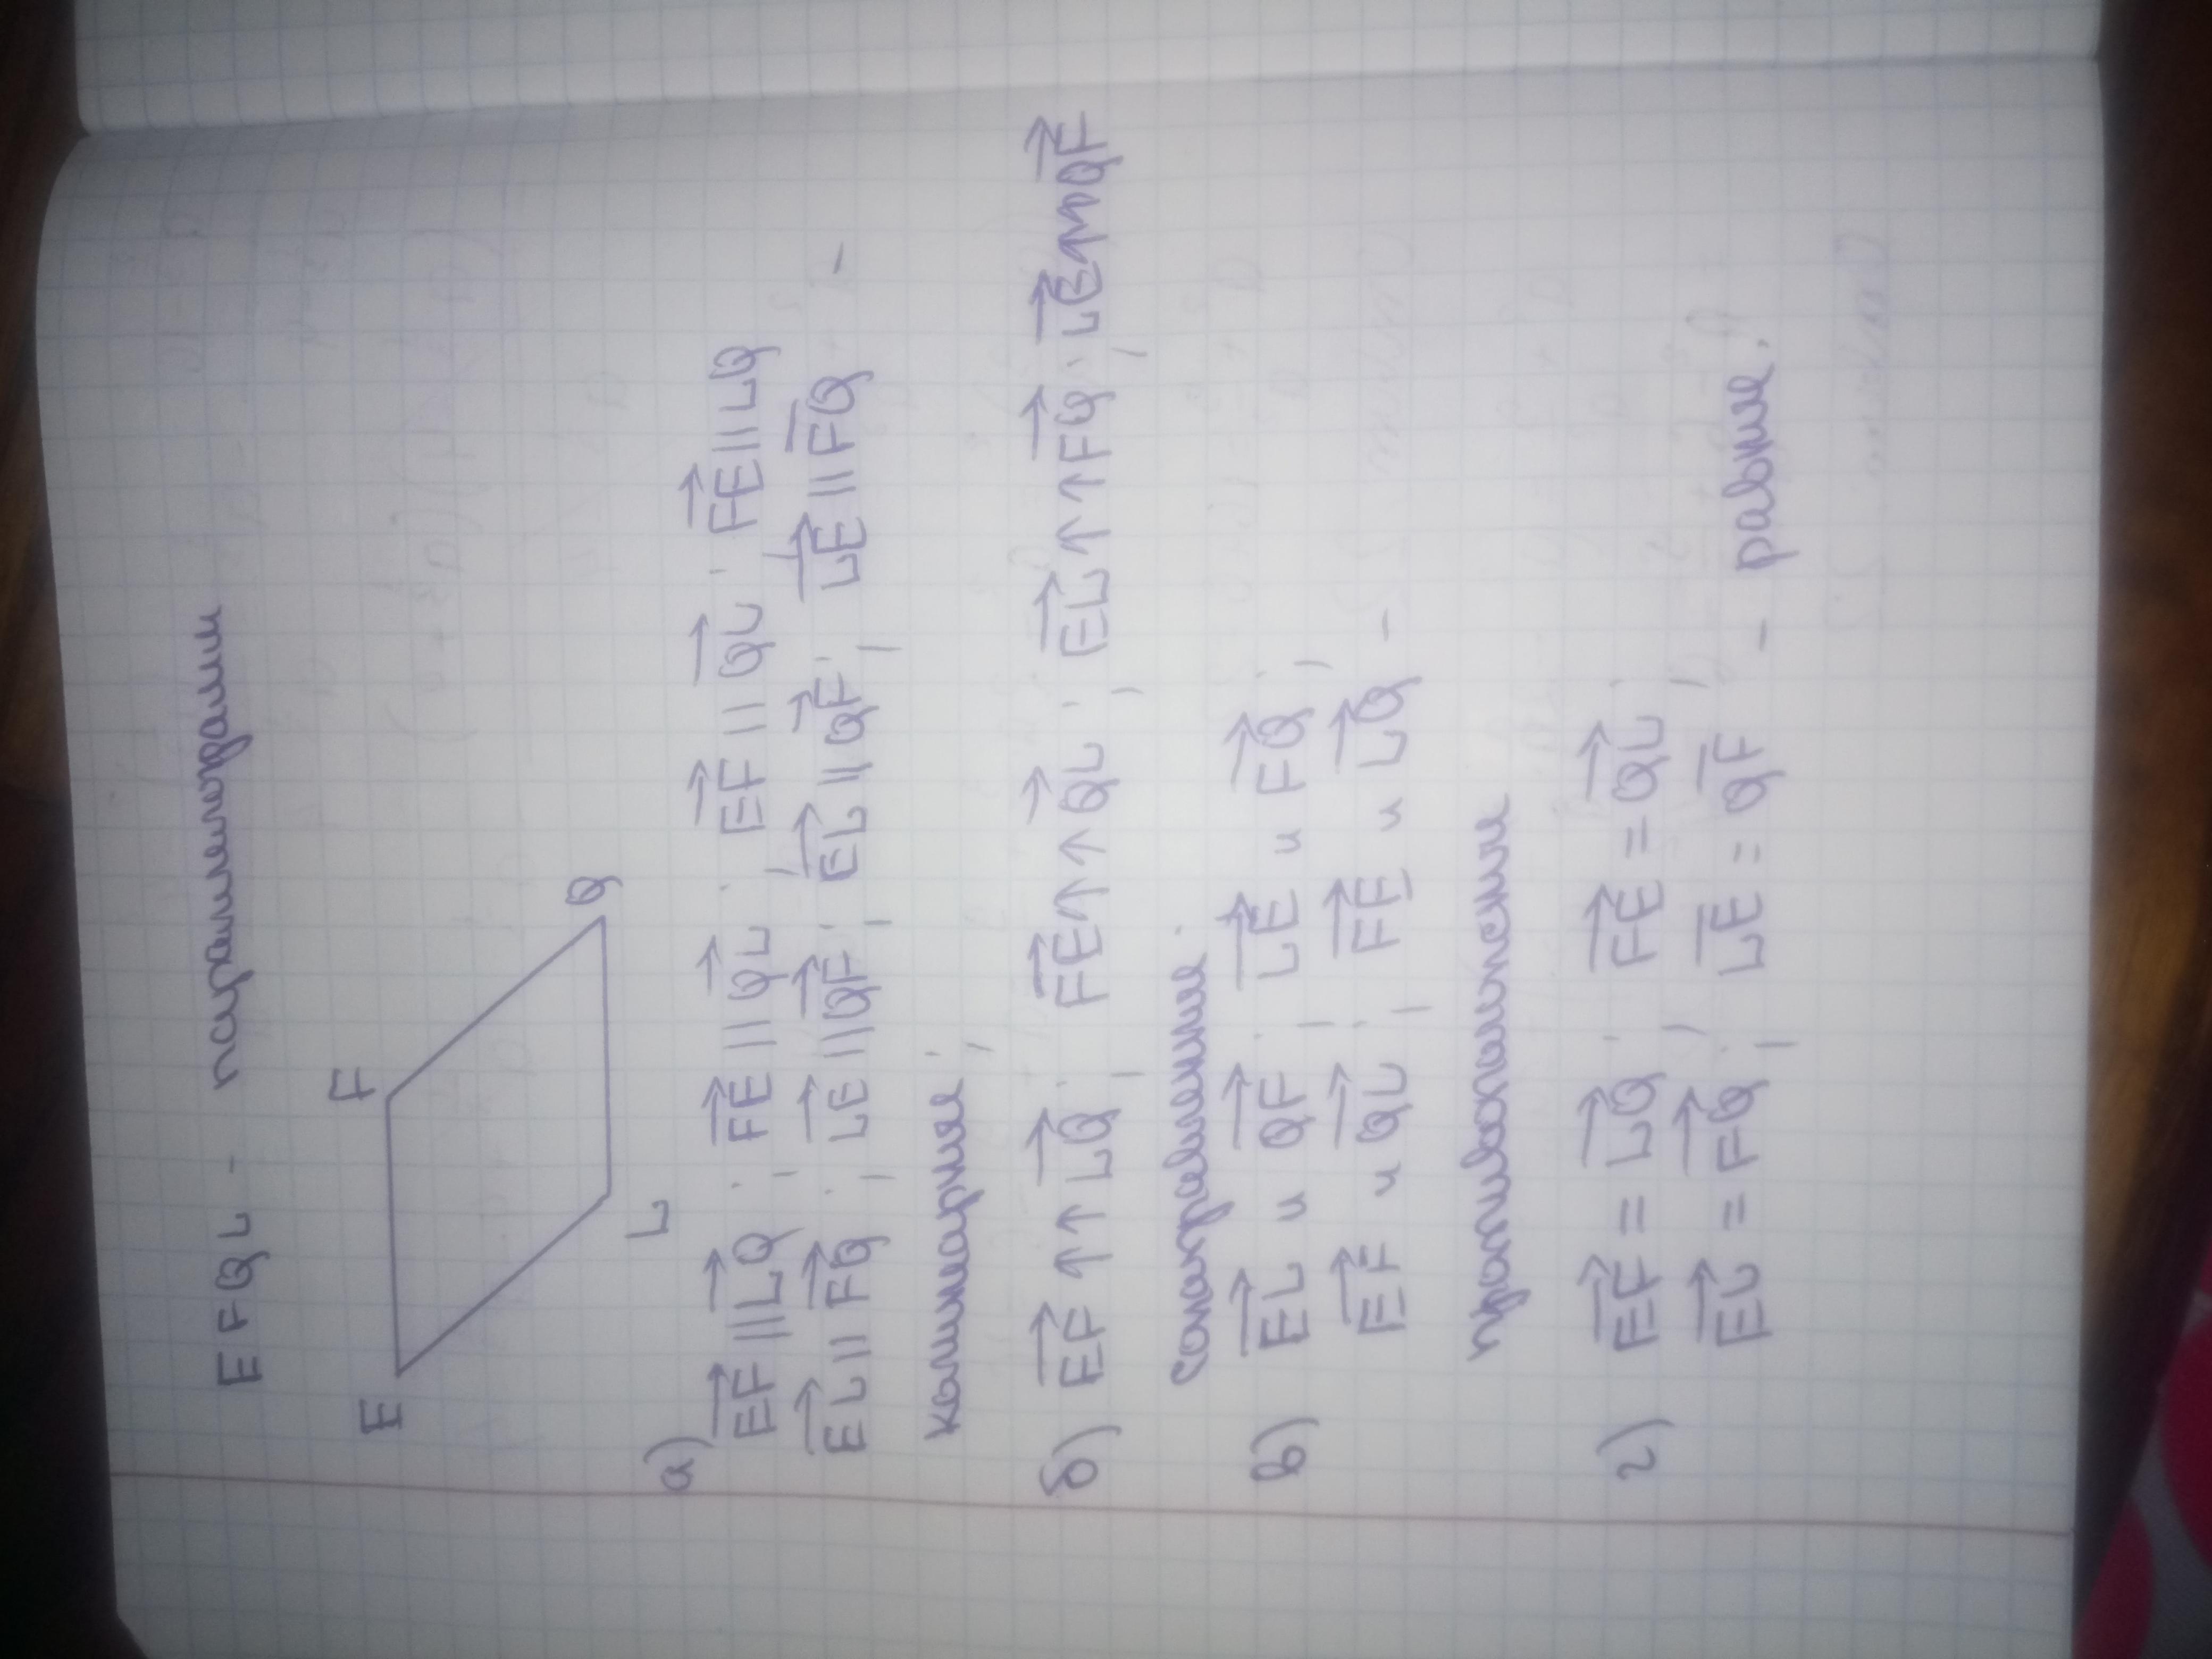 EFQL - параллелограмм
E F
L Q
а)
EF || LQ ; FE || QL ; EF || QL ; FE || LQ ;
EL || FQ ; LE || QF ; EL || QF ; LE || FQ -
коллинеарные ;
б) EF ↑↑ LQ ; FE ↑↑ QL ; EL ↑↑ FQ ; LE ↑↑ QF
сонаправленные.
в) EL и QF ; LE и FQ ;
EF и QL ; FE и LQ -
противоположные
г) EF = LQ ; FE = QL ;
EL = FQ ; LE = QF - равные.